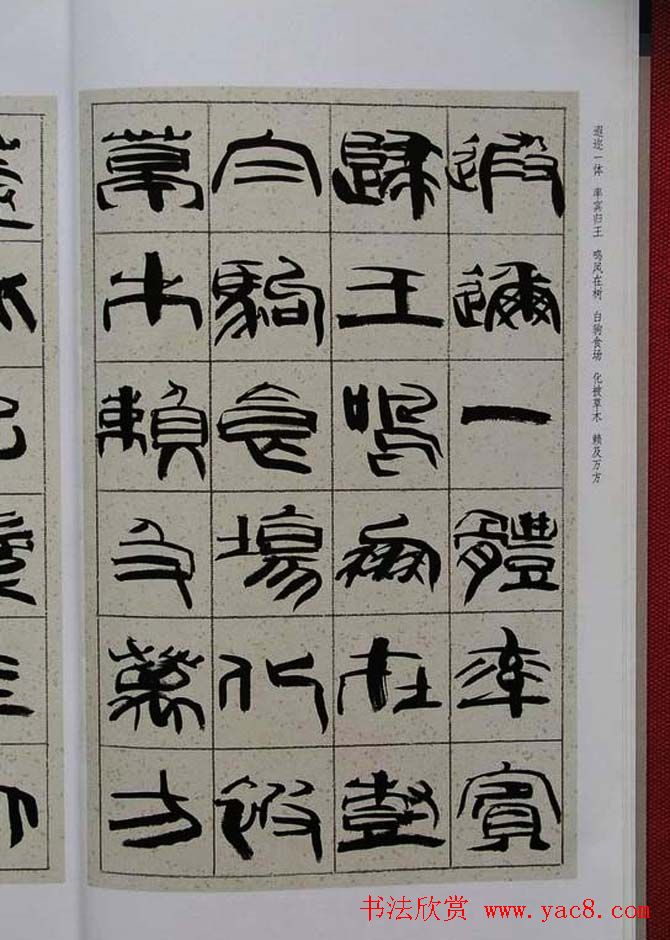 遐迩一体 率宾归王 鸣凤在树 白驹食场 化被草木 赖及万方
遐邇一體率賓
歸王鳴鳳在樹
白駒食場化被
草木賴及萬方
书法欣赏 www.yac8.com